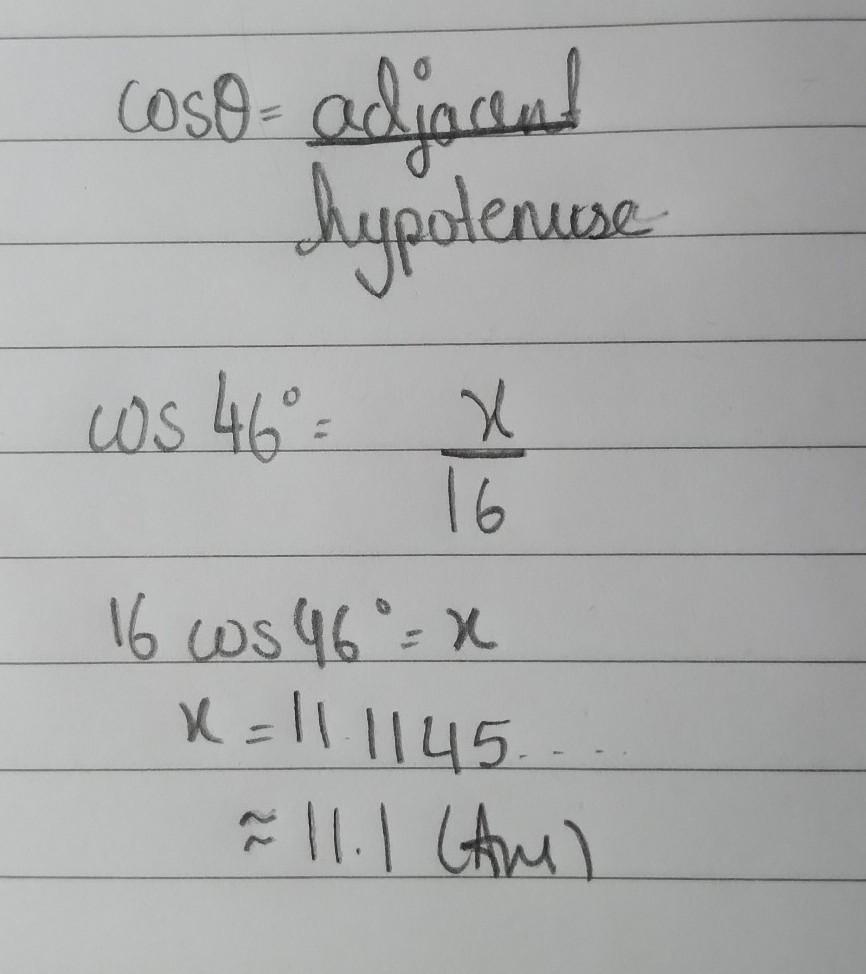 cosθ = adjacent
hypotenuse
cos 46° = x
16
16 cos 46° = x
x = 11.1145....
≈ 11.1 (Ans)